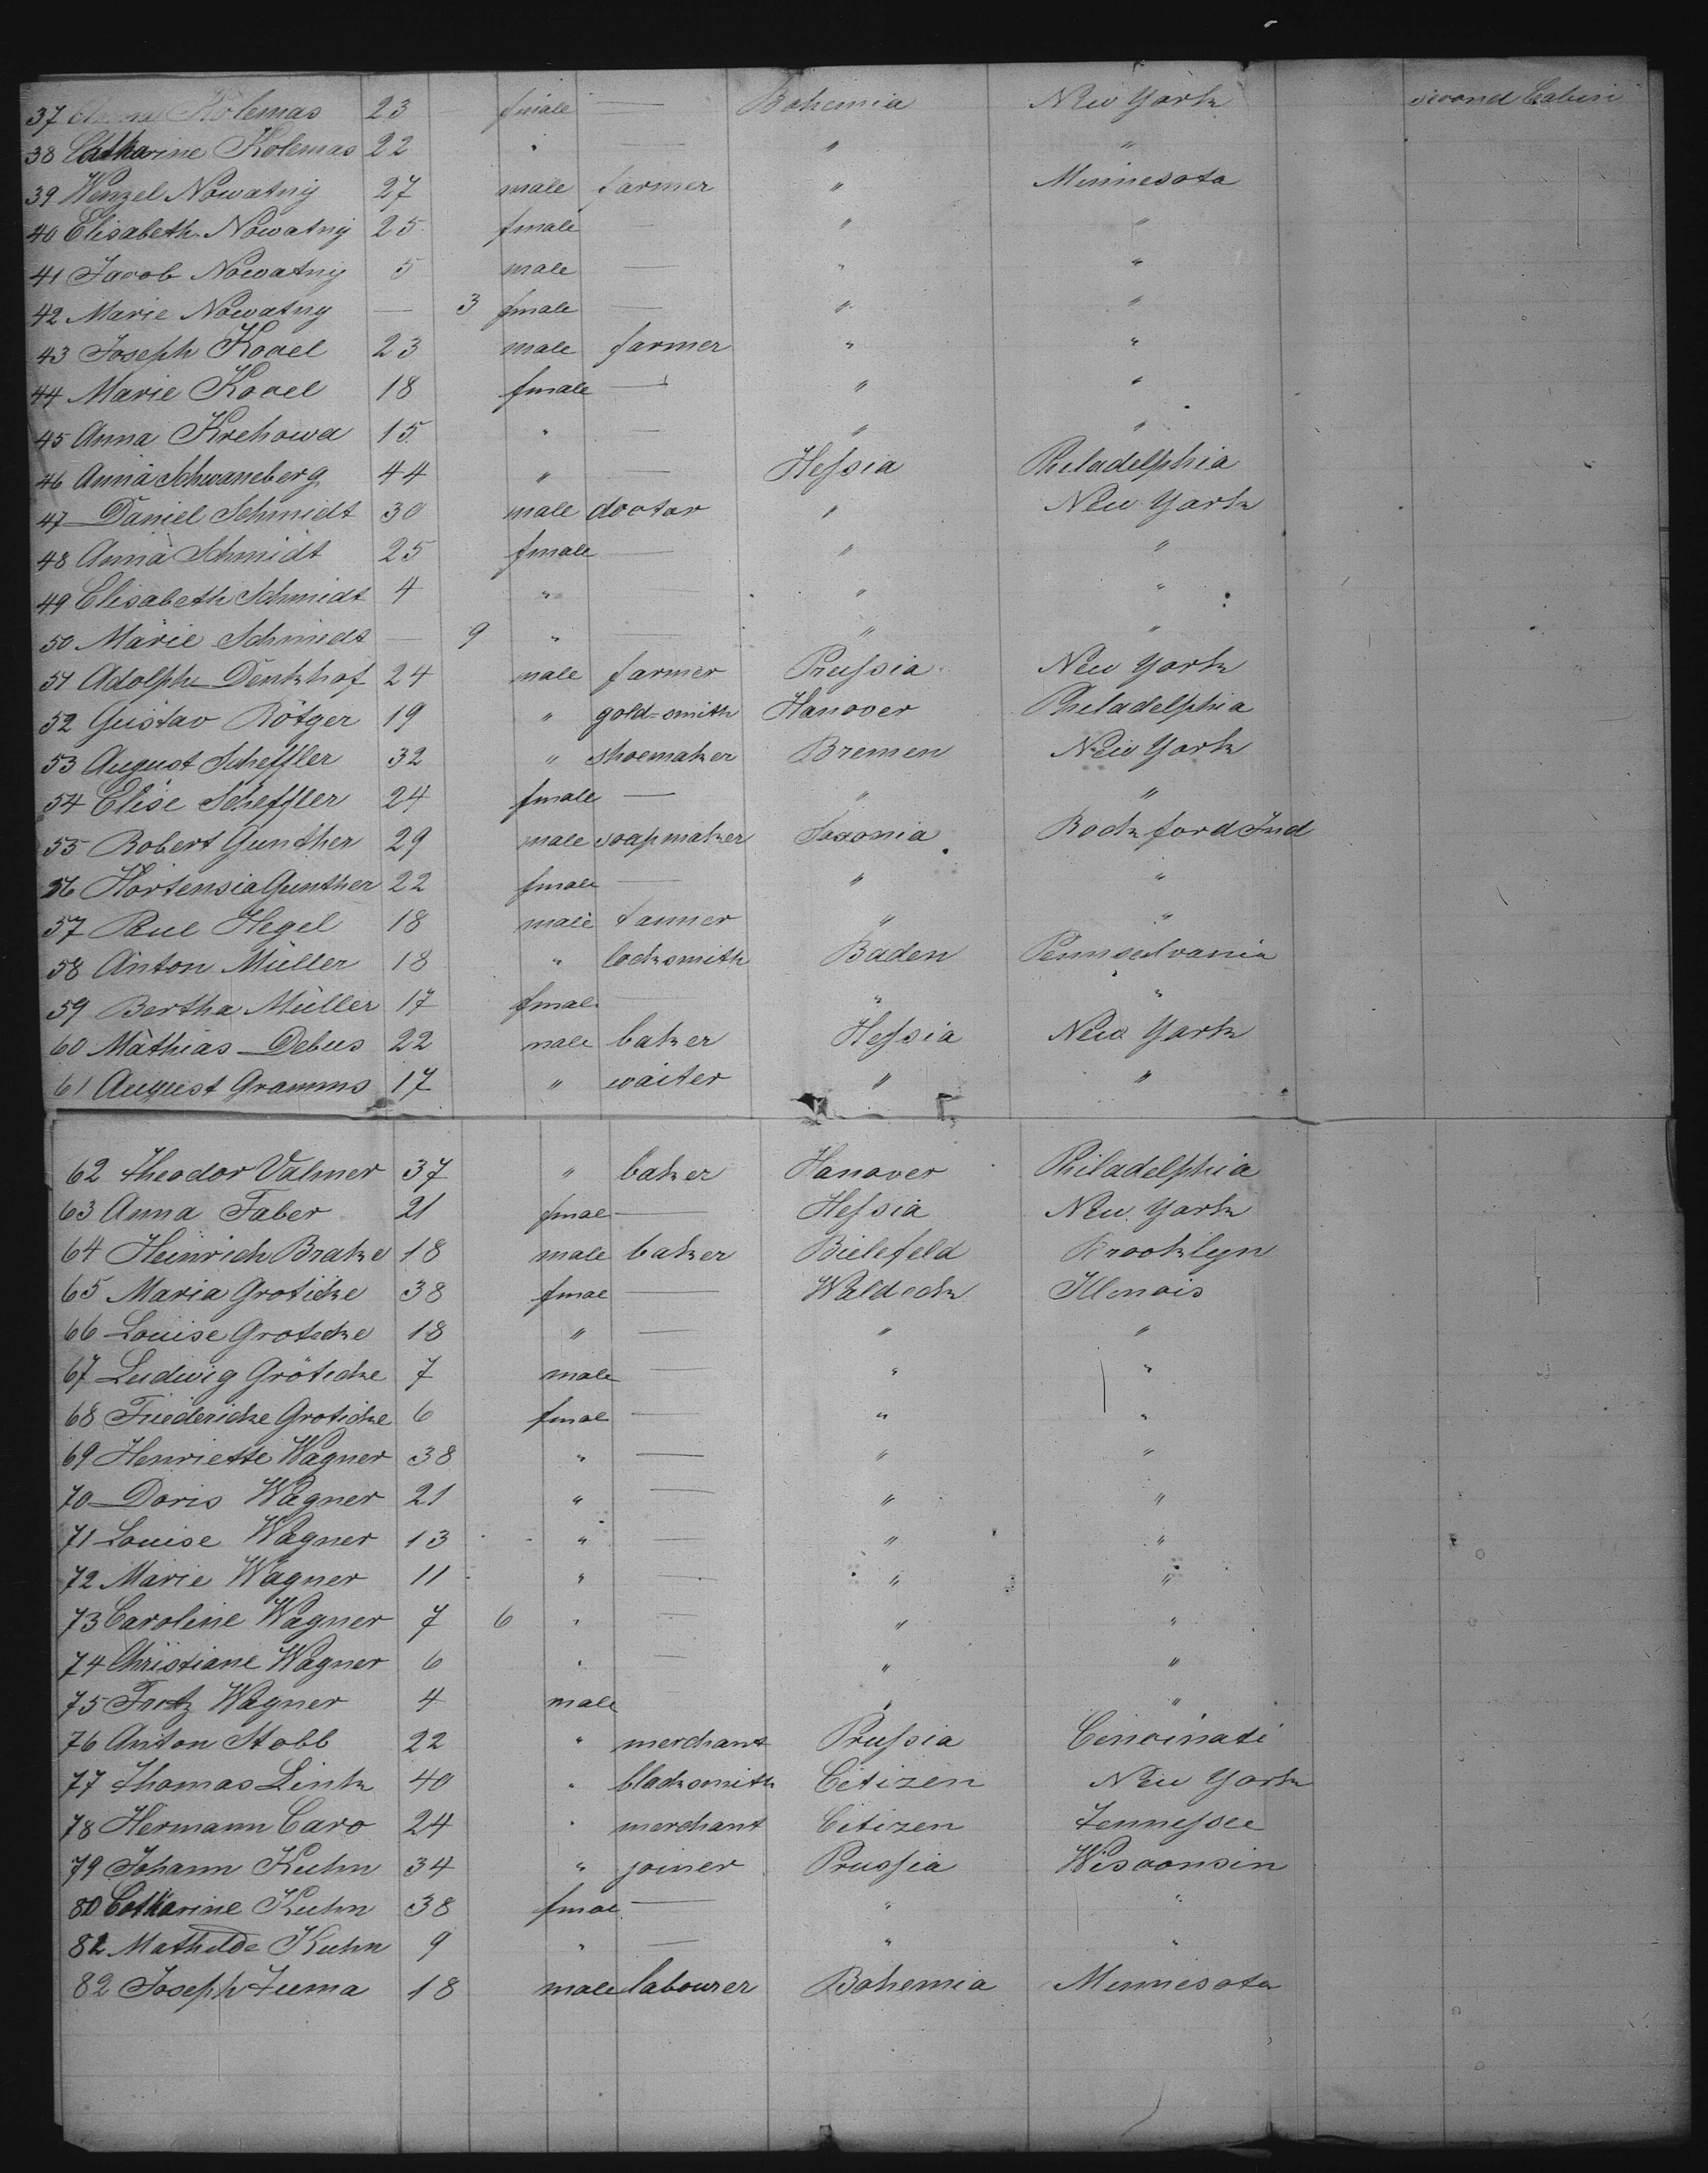 37 Kolemas 23 fmale — Bohemia New York second Cabin
38 Catharine Kolemas 22 " — " "
39 Wenzel Nowatny 27 male farmer " Minnesota
40 Elisabeth Nowatny 25 fmale — " "
41 Jacob Nowatny 5 male — " "
42 Marie Nowatny — 3 fmale — " "
43 Joseph Kovel 23 male farmer " "
44 Marie Kovel 18 fmale — " "
45 Anna Krehowa 15 " — " "
46 Anna Schwaneberg 44 " — Hessia Philadelphia
47 Daniel Schmidt 30 male doctor " New York
48 Anna Schmidt 25 fmale — " "
49 Elisabeth Schmidt 4 " — " "
50 Marie Schmidt — 9 " — " "
51 Adolph Denkhof 24 male farmer Prussia New York
52 Gustav Rötger 19 " gold-smith Hanover Philadelphia
53 August Scheffler 32 " shoemaker Bremen New York
54 Elise Scheffler 24 fmale — " "
55 Robert Gunther 29 male soapmaker Saxonia Rockford Ind
56 Hortensia Gunther 22 fmale — " "
57 Paul Hegel 18 male tanner " "
58 Anton Müller 18 " locksmith Baden Pennselvania
59 Bertha Müller 17 fmale " "
60 Mathias Debus 22 male baker Hessia New York
61 August Gramms 17 " waiter " "
62 Theodor Valmer 37 " baker Hanover Philadelphia
63 Anna Faber 21 fmal — Hessia New York
64 Heinrich Brake 18 male baker Bielefeld Brooklyn
65 Maria Groticke 38 fmal — Waldeck Illenois
66 Louise Groticke 18 " — " "
67 Ludwig Groticke 7 male — " "
68 Friedericke Groticke 6 fmal — " "
69 Henriette Wagner 38 " — " "
70 Doris Wagner 21 " — " "
71 Louise Wagner 13 " — " "
72 Marie Wagner 11 " — " "
73 Caroline Wagner 7 6 " — " "
74 Christiane Wagner 6 " — " "
75 Fritz Wagner 4 male " "
76 Anton Stobb 22 " merchant Prussia Cincinati
77 Thomas Link 40 " blacksmith Citizen New York
78 Hermann Caro 24 " merchant Citizen Tennessee
79 Johann Kuhn 34 " joiner Prussia Wisconsin
80 Catharine Kuhn 38 fmal — " "
81 Mathilde Kuhn 9 " — " "
82 Joseph Tuma 18 male labourer Bohemia Minnesota